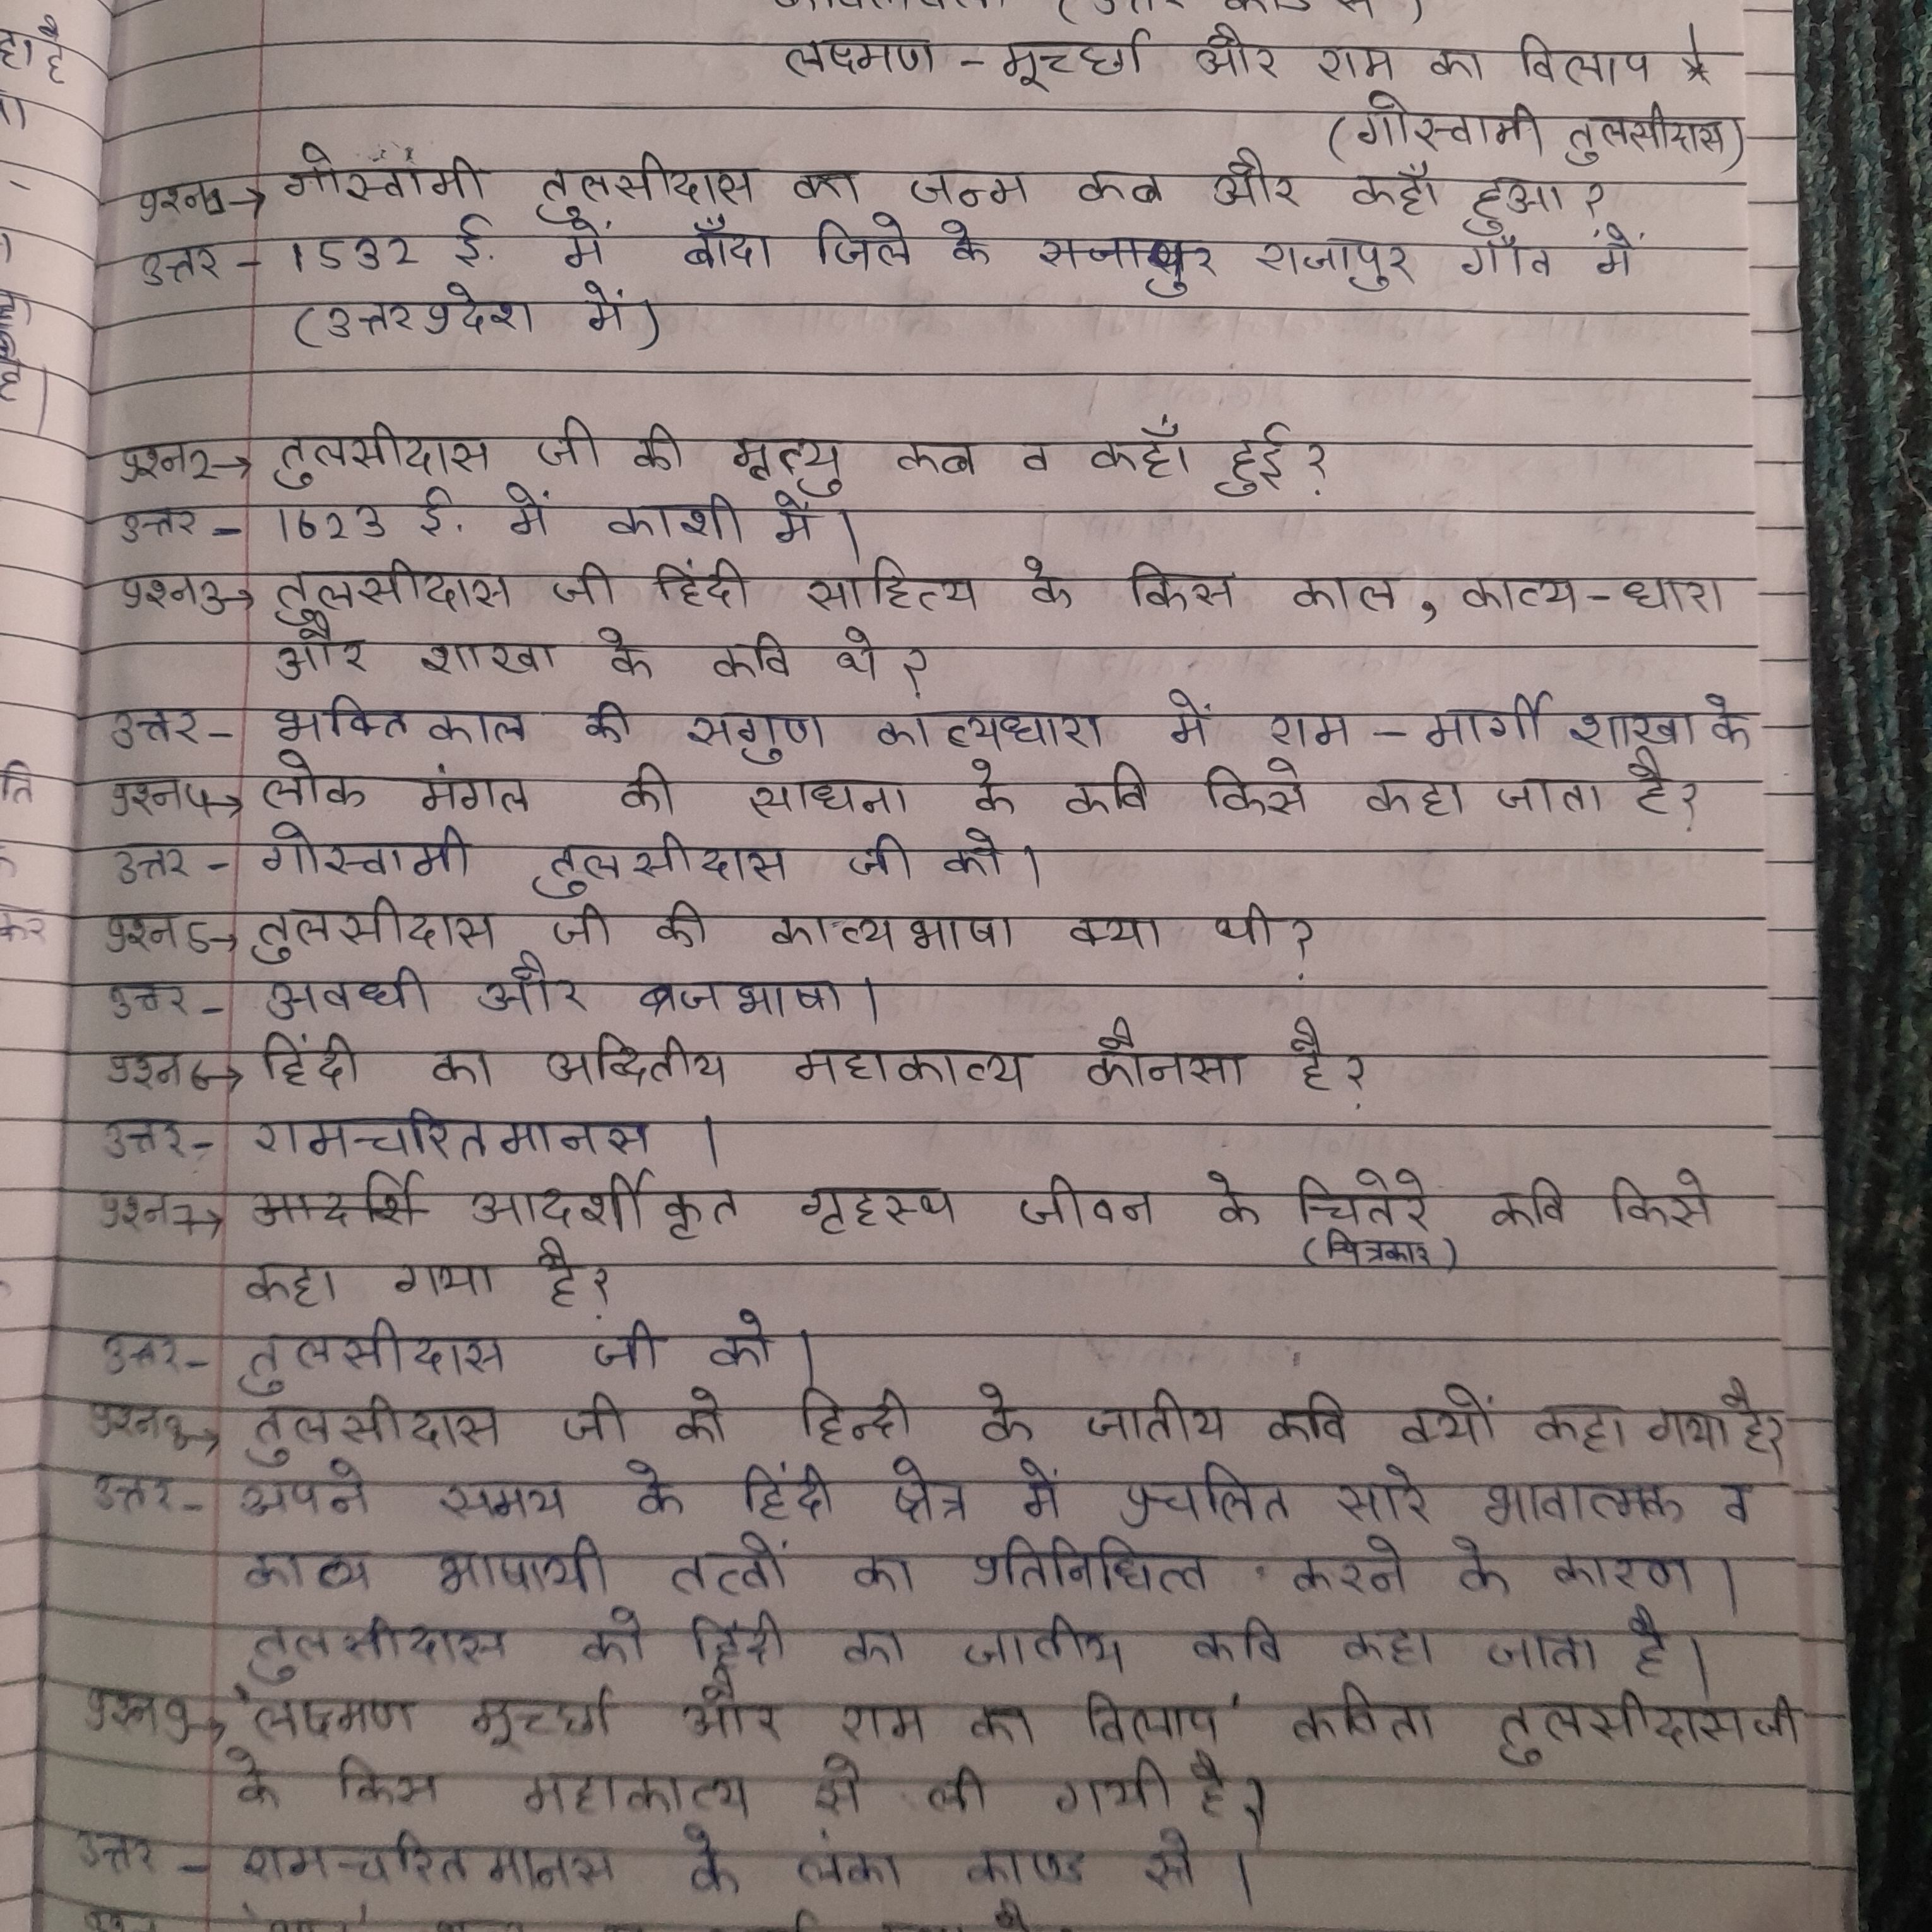 लक्ष्मण - मूर्च्छा और राम का विलाप *
(गोस्वामी तुलसीदास)
प्रश्न1→ गोस्वामी तुलसीदास का जन्म कब और कहाँ हुआ?
उत्तर - 1532 ई. में बाँदा जिले के राजापुर राजापुर गाँव में
(उत्तरप्रदेश में)
प्रश्न2→ तुलसीदास जी की मृत्यु कब व कहाँ हुई?
उत्तर - 1623 ई. में काशी में।
प्रश्न3→ तुलसीदास जी हिंदी साहित्य के किस काल, काव्य-धारा
और शाखा के कवि थे?
उत्तर - भक्तिकाल की सगुण काव्यधारा में राम - मार्गी शाखा के
प्रश्न4→ लोक मंगल की साधना के कवि किसे कहा जाता है?
उत्तर - गोस्वामी तुलसीदास जी को।
प्रश्न5→ तुलसीदास जी की काव्यभाषा क्या थी?
उत्तर - अवधी और ब्रजभाषा।
प्रश्न6→ हिंदी का अद्वितीय महाकाव्य कौनसा है?
उत्तर - रामचरितमानस।
प्रश्न7→ आदर्शि आदर्शीकृत गृहस्थ जीवन के चितेरे कवि किसे
(चित्रकार)
कहा गया है?
उत्तर - तुलसीदास जी को।
प्रश्न8→ तुलसीदास जी को हिन्दी के जातीय कवि क्यों कहा गया है?
उत्तर - अपने समय के हिंदी क्षेत्र में प्रचलित सारे भावात्मक व
काव्य भाषायी तत्वों का प्रतिनिधित्व करने के कारण।
तुलसीदास को हिंदी का जातीय कवि कहा जाता है।
प्रश्न9→ 'लक्ष्मण मूर्च्छा और राम का विलाप' कविता तुलसीदास जी
के किस महाकाव्य से ली गयी है?
उत्तर - रामचरितमानस के लंका काण्ड से।